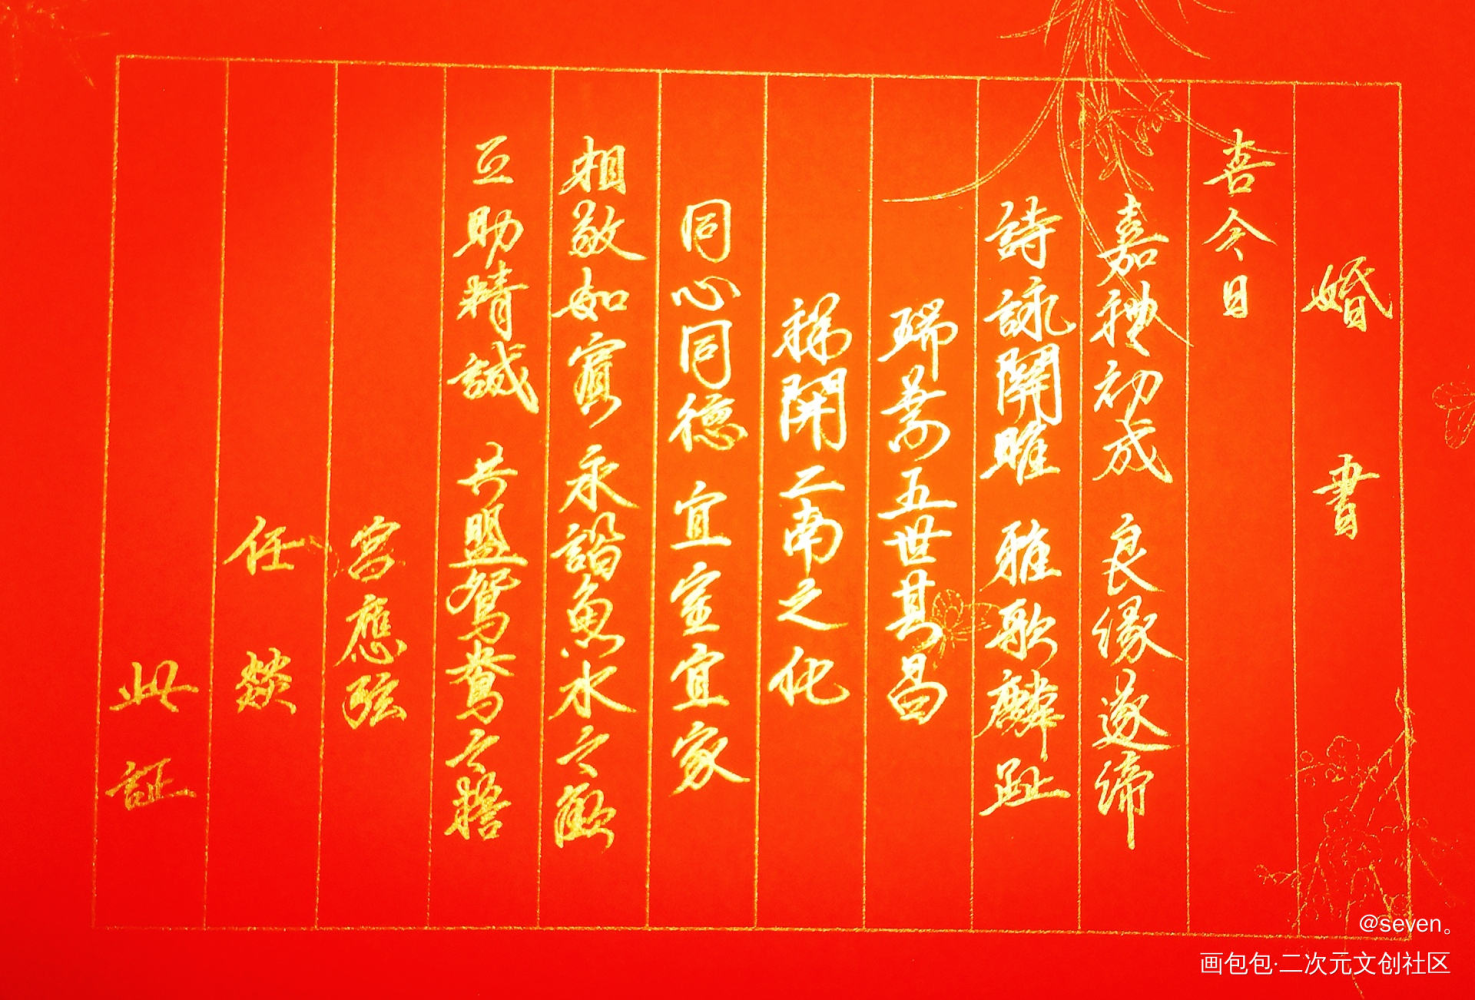 婚書
喜今日
嘉禮初成 良緣遂締
詩詠關雎 雅歌麟趾
瑞葉五世其昌
祥開二南之化
同心同德 宜室宜家
相敬如賓 永諧魚水之歡
互助精誠 共盟鴛鴦之誓
宮應弦
任燚
此証
@seven。
画包包·二次元文创社区